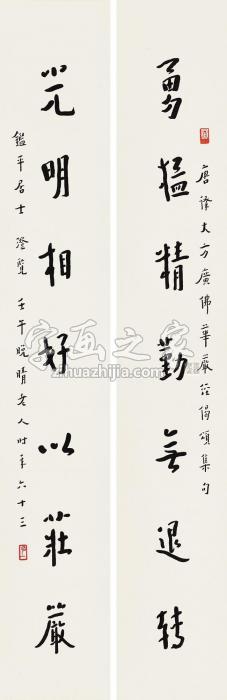 唐译大方廣佛華嚴經偈頌集句
勇猛精勤無退转
光明相好以莊嚴
鑑平居士 澄覽 壬午晚晴老人时年六十三
字画之家
zihuazhijia.com